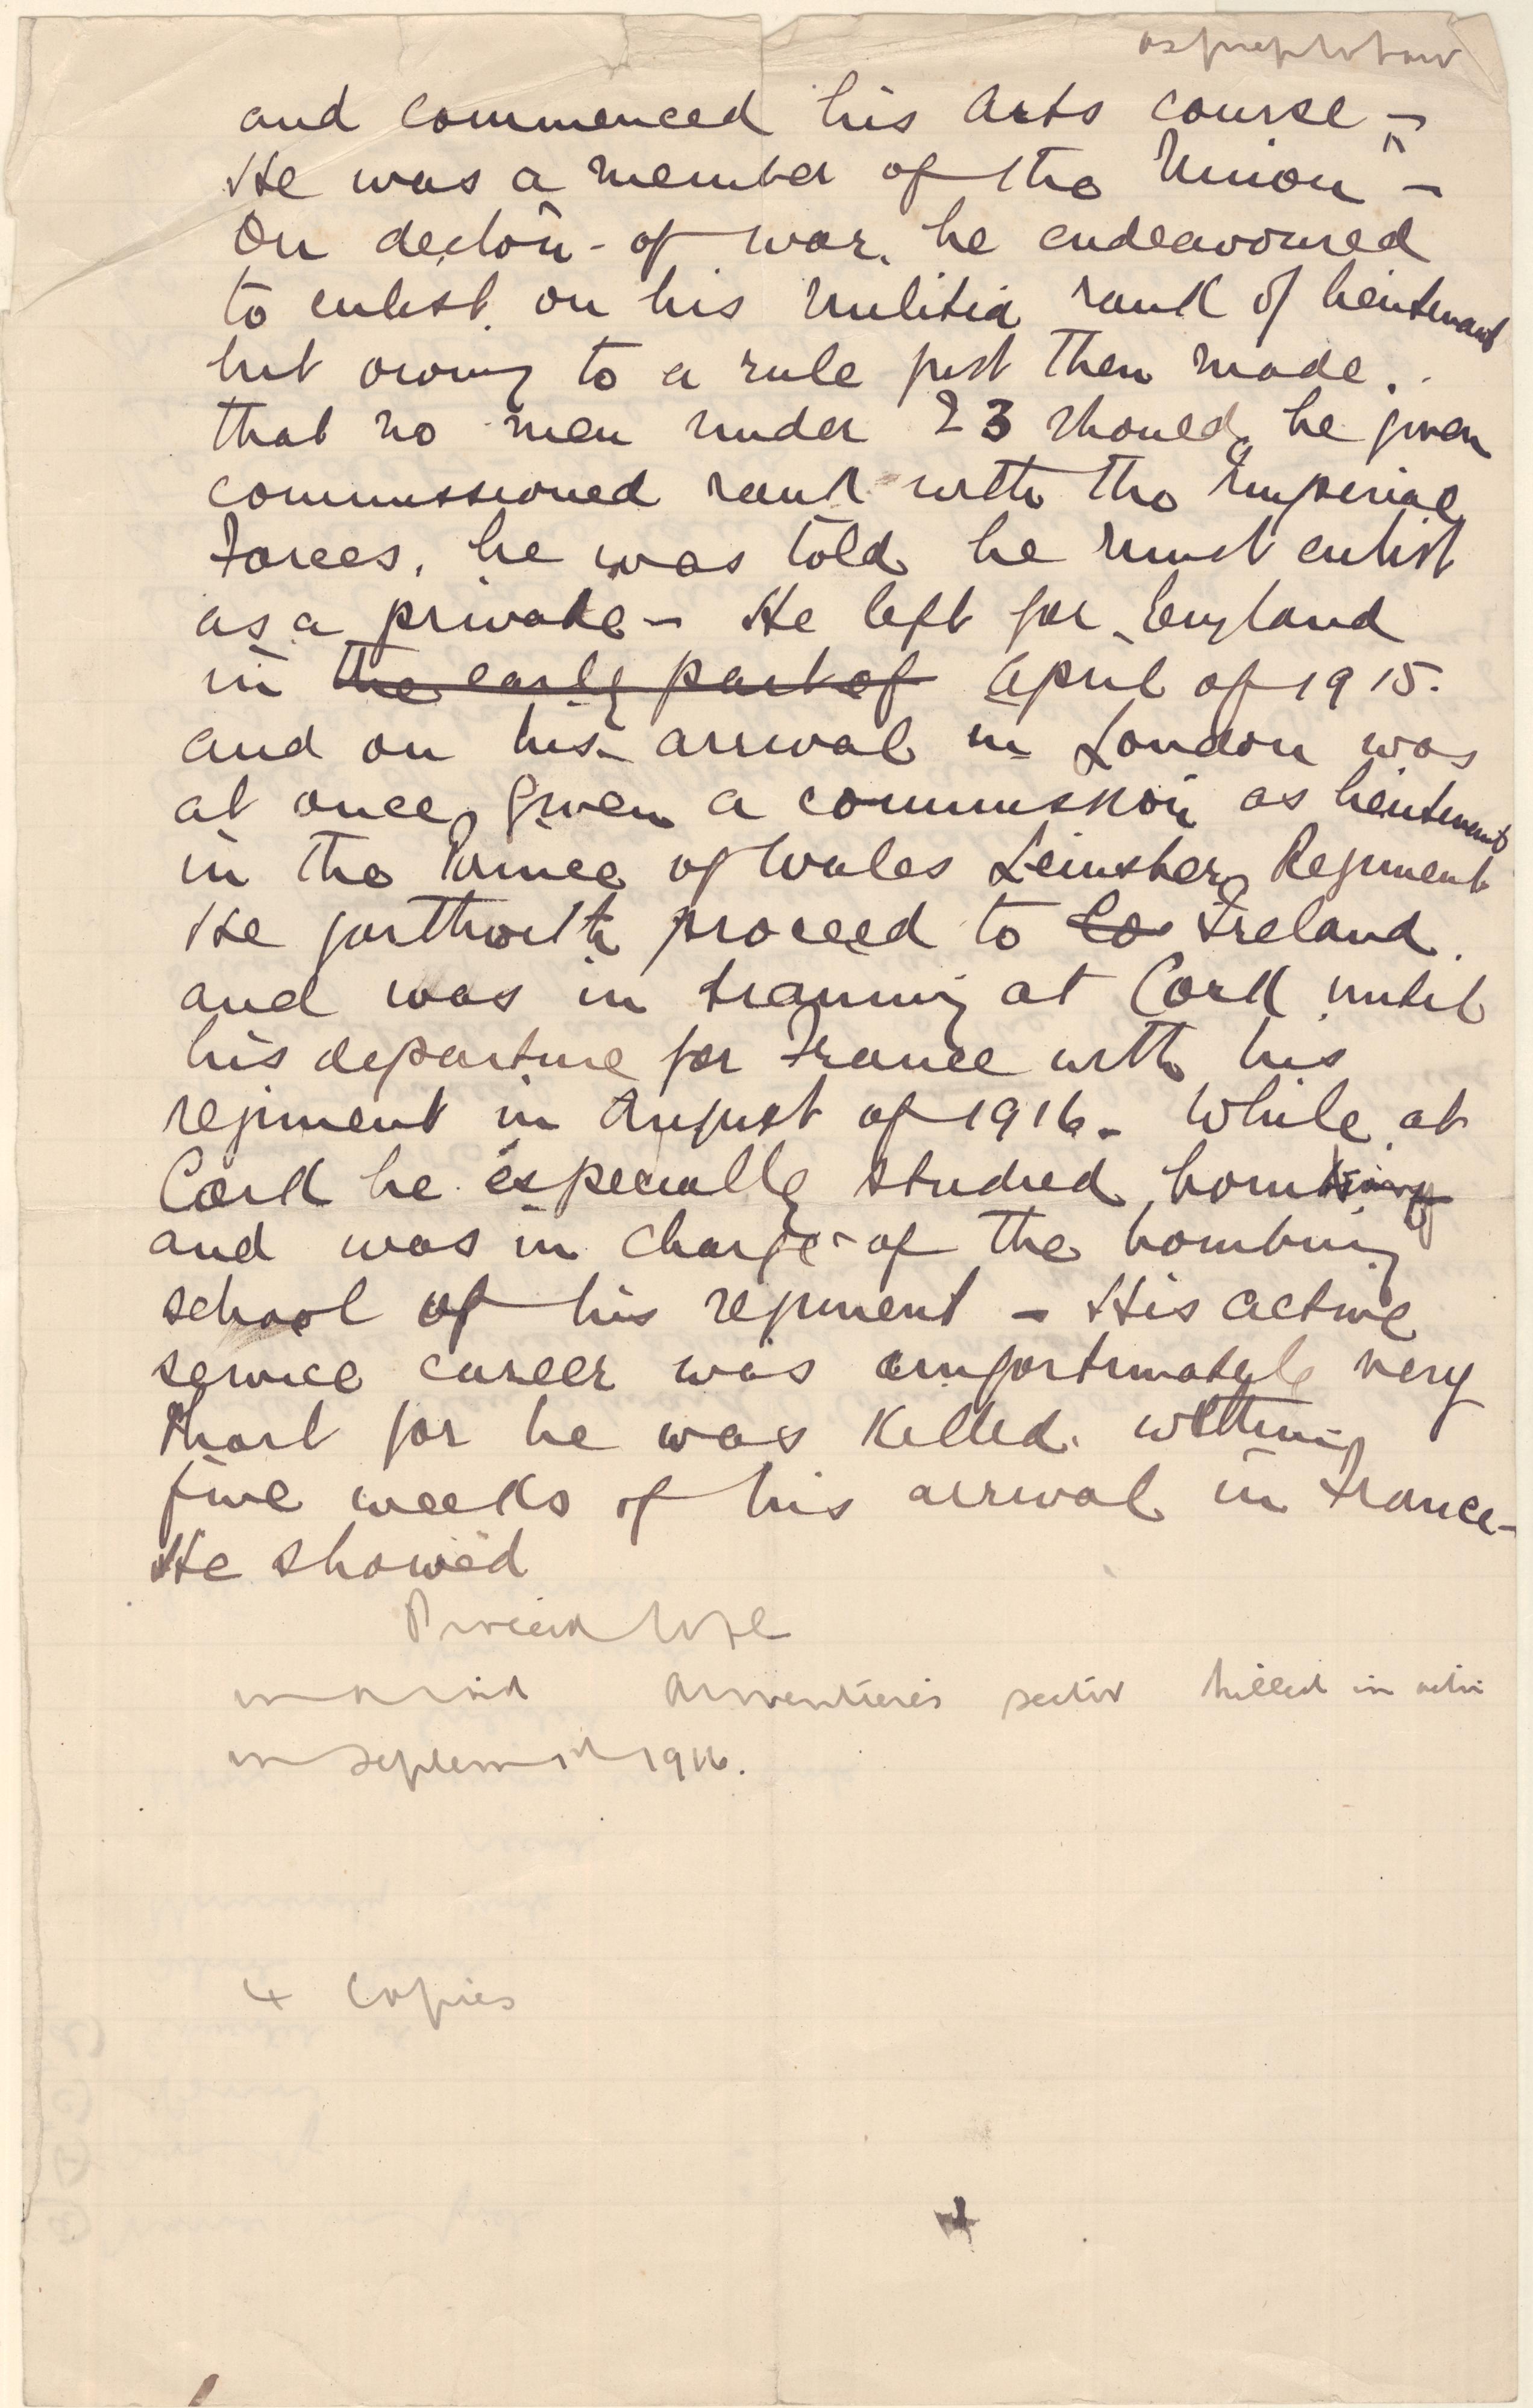 and commenced his Arts course –
He was a member of the Union –
On declōn - of war. he endeavoured
to enlist on his Militia rank of Lieutenant
but owing to a rule just then made.
that no men under 23 should be given
commissioned rank with the Imperial
Forces, he was told he must enlist
as a private – He left for England
in the early part of April of 1915.
and on his arrival in London was
at once given a commission as Lieutenant
in the Prince of Wales Leinster Regiment
He forthwith proceed to Co Ireland.
and was in training at Cork until
his departure for France with his
regiment in August of 1916 – While at
Cork he especially studied bombing
and was in charge of the bombing
school of his regiment – His active
service career was unfortunately very
short for he was killed. within
five weeks of his arrival in France –
He showed
Armentieres sector killed in
in September 1916.
4 Copies